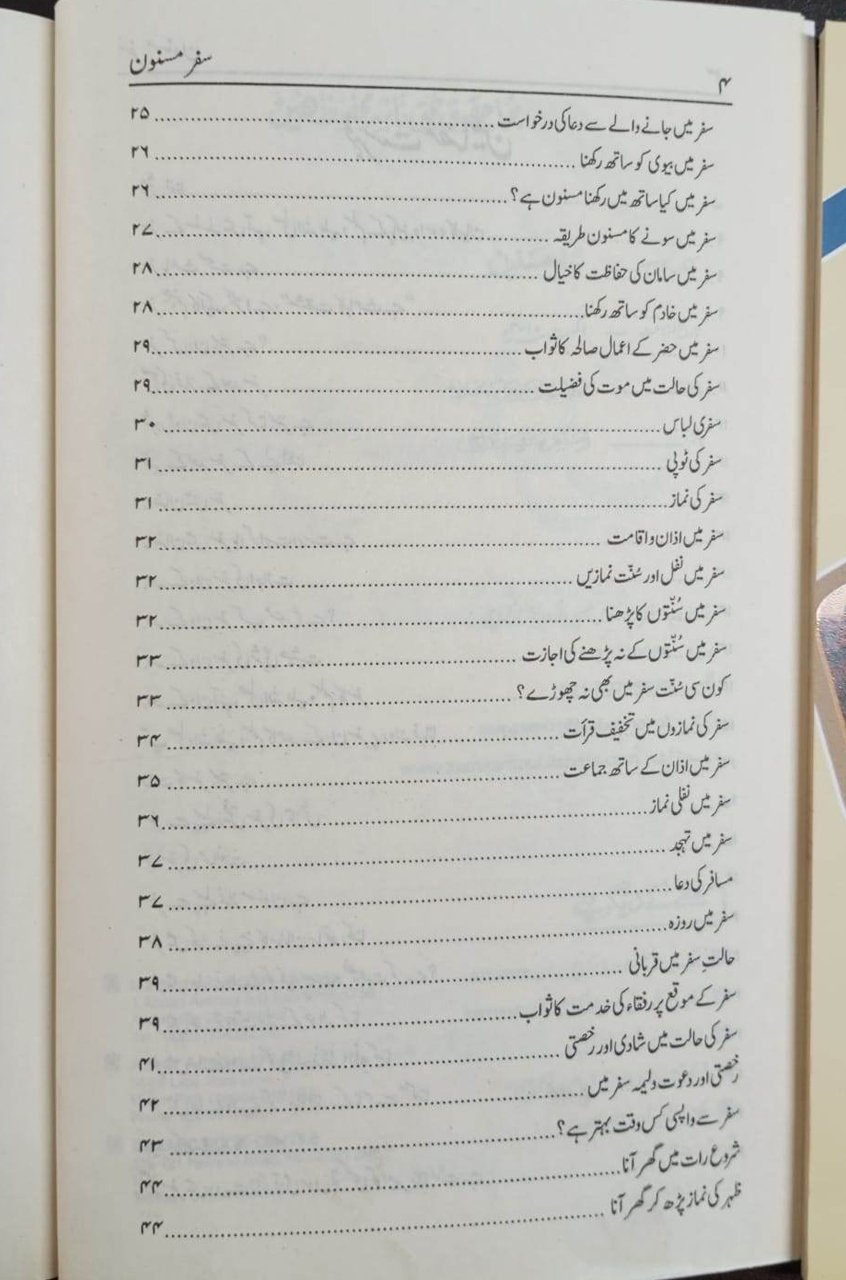 ۴ سفر مسنون
سفر میں جانے والے سے دعا کی درخواست ........ ۲۵
سفر میں بیوی کو ساتھ رکھنا ........ ۲۶
سفر میں کیا ساتھ میں رکھنا مسنون ہے؟ ........ ۲۶
سفر میں سونے کا مسنون طریقہ ........ ۲۷
سفر میں سامان کی حفاظت کا خیال ........ ۲۸
سفر میں خادم کو ساتھ رکھنا ........ ۲۸
سفر میں حضر کے اعمال صالحہ کا ثواب ........ ۲۹
سفر کی حالت میں موت کی فضیلت ........ ۲۹
سفری لباس ........ ۳۰
سفر کی ٹوپی ........ ۳۱
سفر کی نماز ........ ۳۱
سفر میں اذان و اقامت ........ ۳۲
سفر میں نفل اور سُنّت نمازیں ........ ۳۲
سفر میں سُنّتوں کا پڑھنا ........ ۳۲
سفر میں سُنّتوں کے نہ پڑھنے کی اجازت ........ ۳۳
کون سی سُنّت سفر میں بھی نہ چھوڑے؟ ........ ۳۳
سفر کی نمازوں میں تخفیف قرأت ........ ۳۴
سفر میں اذان کے ساتھ جماعت ........ ۳۵
سفر میں نفلی نماز ........ ۳۶
سفر میں تہجد ........ ۳۷
مسافر کی دعا ........ ۳۷
سفر میں روزہ ........ ۳۸
حالتِ سفر میں قربانی ........ ۳۹
سفر کے موقع پر رفقاء کی خدمت کا ثواب ........ ۳۹
سفر کی حالت میں شادی اور رخصتی ........ ۴۱
رخصتی اور دعوت ولیمہ سفر میں ........ ۴۲
سفر سے واپسی کس وقت بہتر ہے؟ ........ ۴۳
شروع رات میں گھر آنا ........ ۴۴
ظہر کی نماز پڑھ کر گھر آنا ........ ۴۴